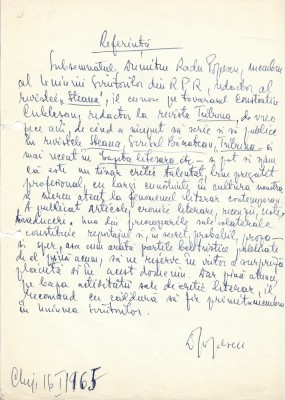 Referință
Subsemnatul Dumitru Radu Popescu, membru
al Uniunii Scriitorilor din R.P.R, redactor al
revistei „Steaua”, îl cunosc pe tovarășul Constantin
Cubleșan, redactor la revista Tribuna, de vreo
zece ani, de cînd a început să scrie și să publice
în revistele Steaua, Scrisul Bănățean, Tribuna – și
mai recent în Gazeta literară etc, – a pot să spun
că este un tînăr critic talentat, bun pregătit
profesional, cu largi cunoștințe în cultura noastră
și mereu atent la fenomenul literar contemporan.
A publicat articole, cronici literare, recenzii, note,
traduceri, – una din preocupările sale colaterale
constituie reportajul și, în secret, probabil, proza –
și sper, așa cum arată părțile beletristice publicate
de el pînă acum, să ne rezerve în viitor o surpriză
plăcută și în acest domeniu. Dar pînă atunci,
pe baza activității sale de critic literar, îl
recomand cu căldură să fie primit membru
în Uniunea Scriitorilor.
D R Popescu
Cluj, 16 I 1965